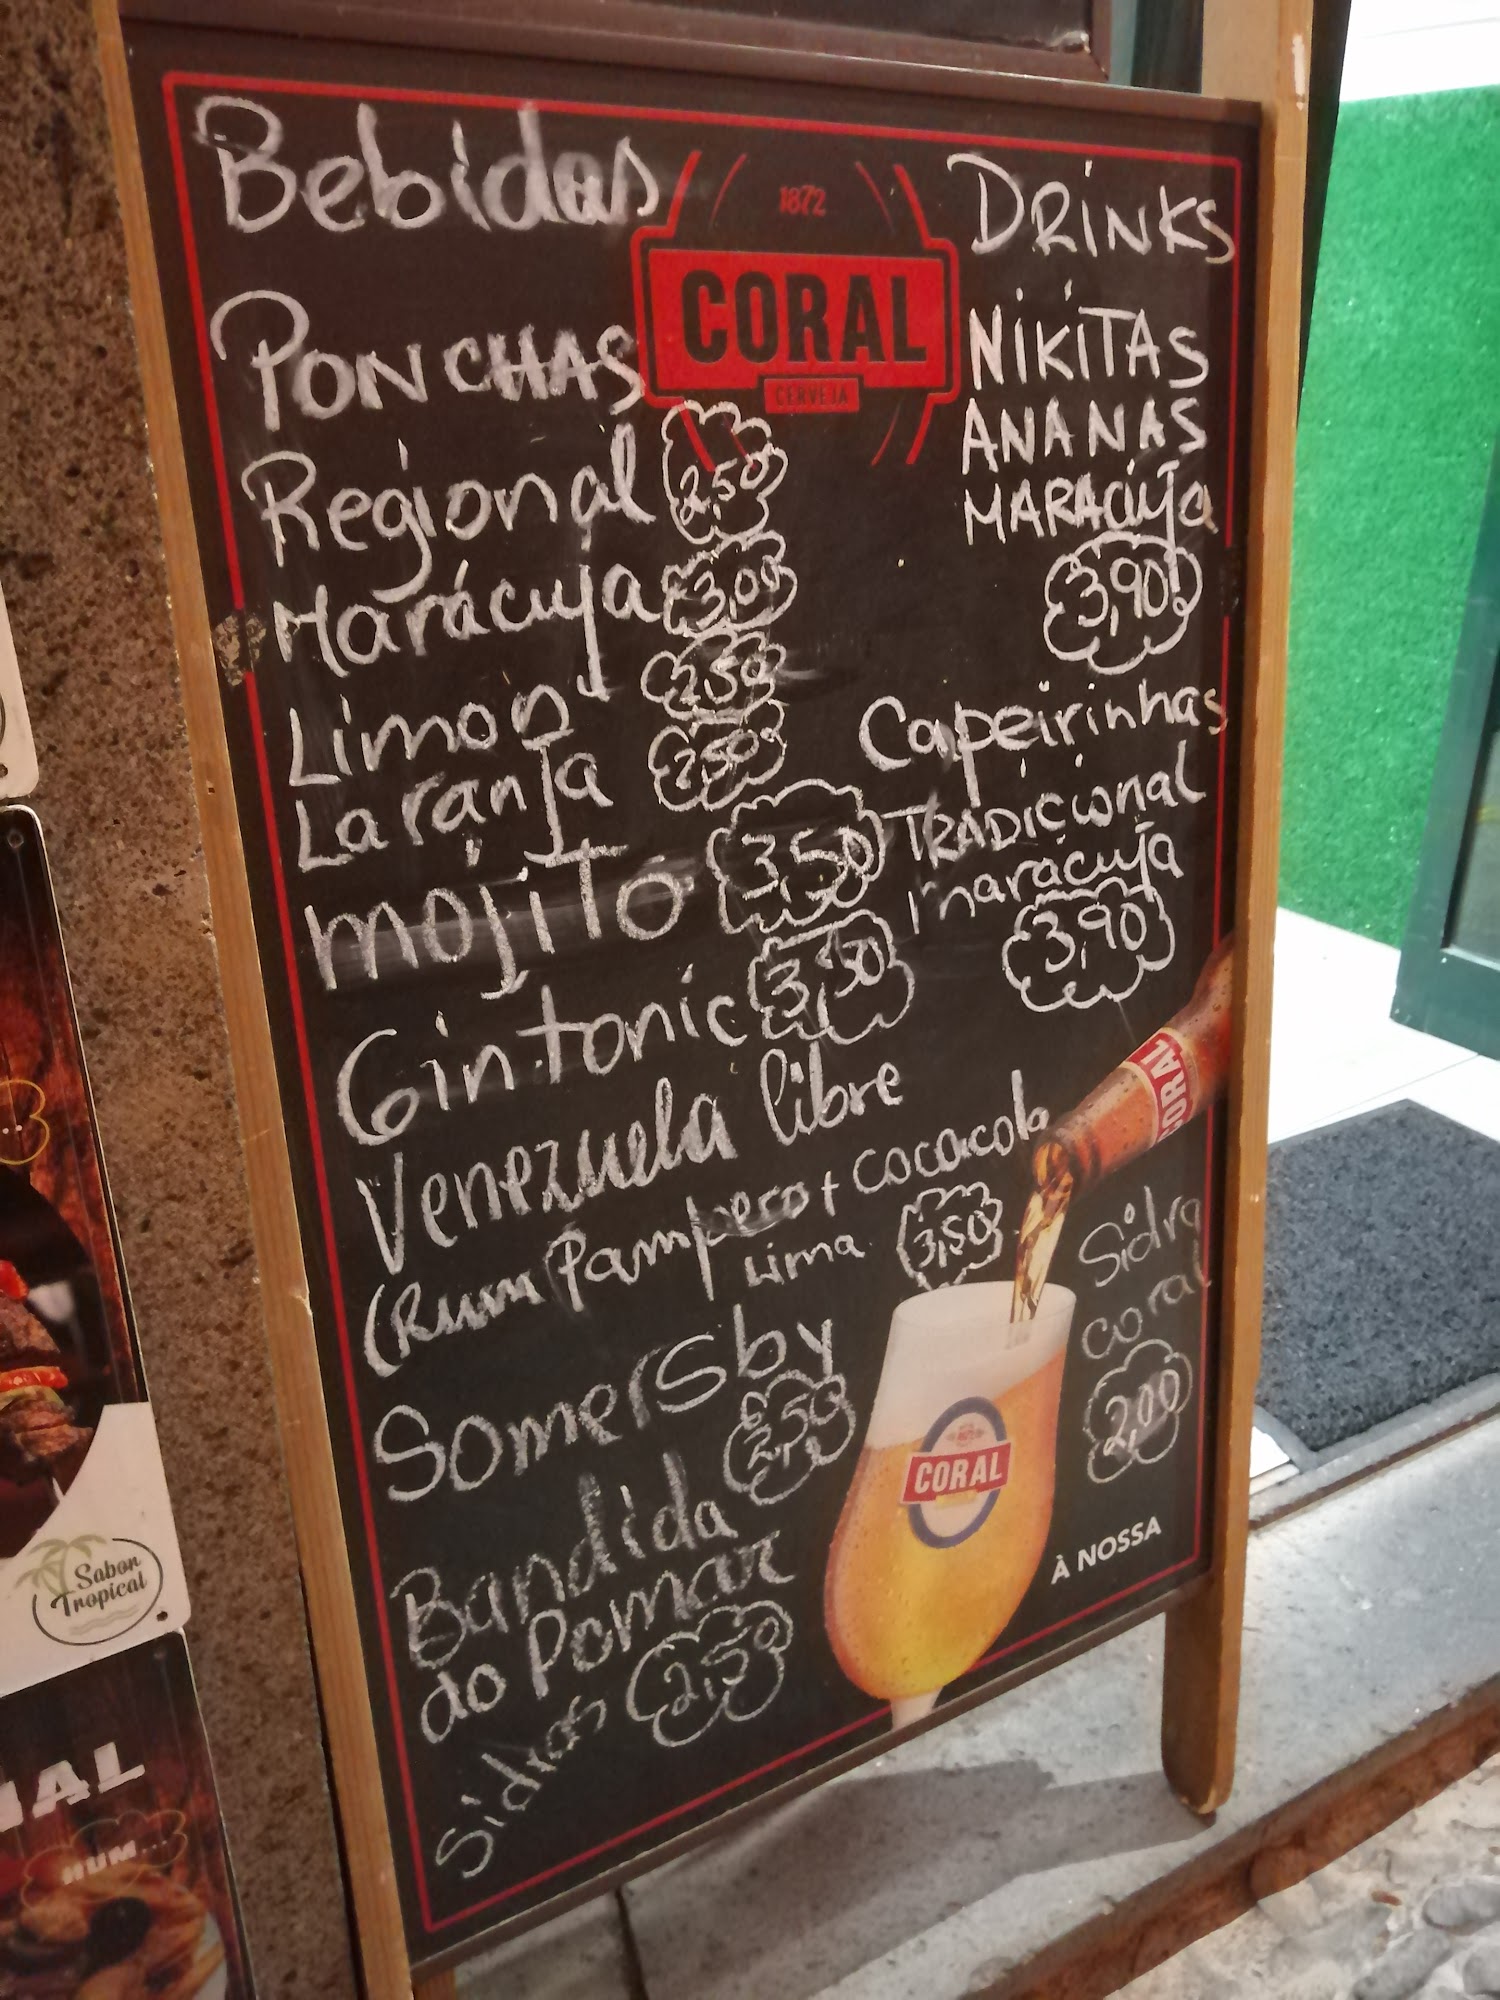 Bebidas
DRINKS
1872
CORAL
CERVEJA
PONCHAS
Regional 2,50
Marácuja 3,00
Limon 2,50
Laranja 2,50
mojito 3,50
Gintonic 3,50
Venezuela libre
(Rum Pampero + cocacola
Lima 3,50
Somersby
2,50
Bandida
do Pomar
Sidras 2,50
NIKITAS
ANANAS
MARACUJA
3,90
Capeirinhas
TRADICIONAL
maracuja
3,90
CORAL
Sidra
coral
2,00
CORAL
À NOSSA
Sabor
Tropical
NAL
HUM...